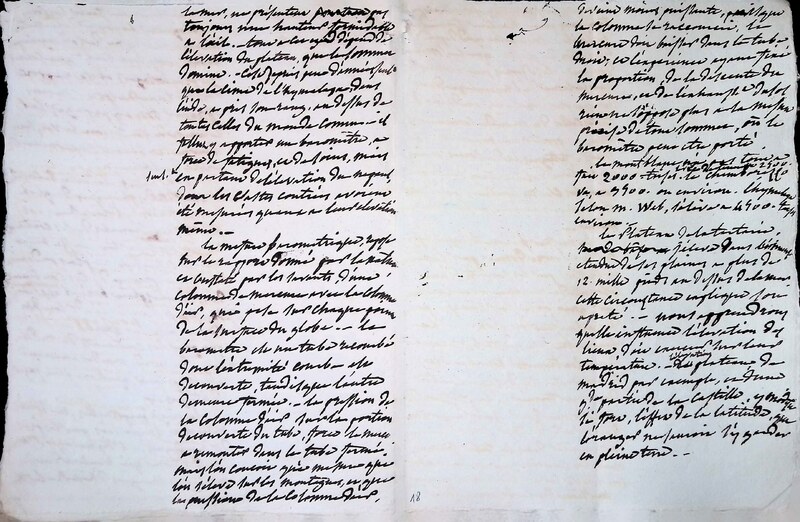 6
la mer, ne présenter pas
toujours une hauteur formidable
à l'œil. — tout a cet égard dépend de
l'élévation du plateau, que le sommet
domine. — C'est depuis peu d'années seul.t
que la cime de l'hymalaya, dans
l'inde, a pris son rang, au dessus de
toutes celles du monde connu — il
fallut y apporter un baromètre, a
force de fatigues, et de soins, mais
en partant de l'élévation du
dont les contrées avoient
été mesurées quant a leur élévation
même. —
la mesure barométrique, repose
sur le rapport donné par la nature
et constaté par les savants d'une
colonne de mercure avec la colonne
d'air, qui pèse sur chaque point
de la surface du globe. — le
baromètre est un tube recourbé
dont l'extrémité courbe est
découverte, tandis que l'autre
demeure fermée. — la pression de
la colonne d'air sur la portion
découverte du tube, force le mercure
a remonter dans le tube fermé.
mais l'on conçoit que mesure que
l'on s'élève sur les montagnes, et que
la pression de la colonne d'air,
18
devient moins puissante, puisque
la colonne se raccourcit, le
mercure doit baisser dans le tube
droit, et l'expérience ayant fixé
la proportion, de la descente du
mercure, et de l'exhaussement du sol
rien ne s'oppose plus a la mesure
précise de tout sommet, où le
baromètre peut être porté.
le mont blanc
2000 toises. le chimborasso
va, a 3400. ou environ. l'hymalaya
selon m. Web, s'élève a 4400 toises
environ.
le Plateau de la tartarie,
s'élève dans l'étendue
de ses plaines a plus de
12. mille pieds au dessus de la mer.
cette circonstance explique son
apreté. — nous apprendrons
quelle influence l'élévation des
lieux doit exercer sur leur
température. — le plateau de
madrid par exemple, et d'une
g.de partie de la Castille, y modifie
si fort, l'effet de la latitude, que
l'oranger ne sauroit s'y garder
en pleine terre. —